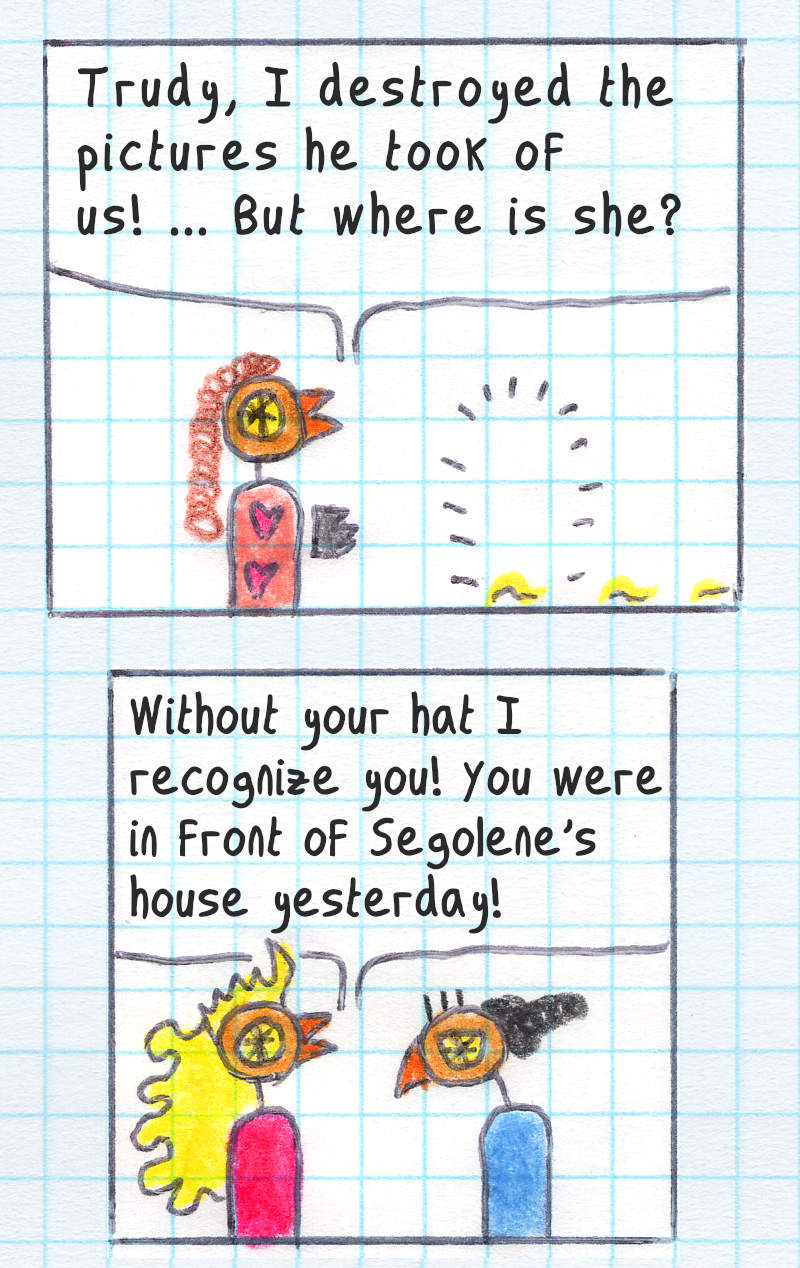 Trudy, I destroyed the
pictures he took of
us! ... But where is she?
Without your hat I
recognize you! You were
in front of Segolene's
house yesterday!